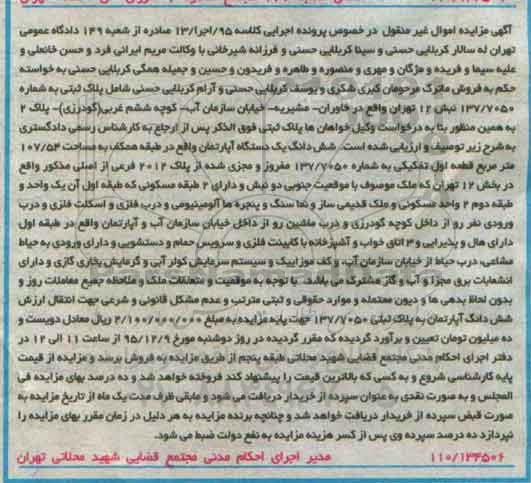 آگهی مزایده اموال غیر منقول در خصوص پرونده اجرایی کلاسه ۹۵/اجرا/۱۳ صادره از شعبه ۱۴۹ دادگاه عمومی
تهران له سالار کربلایی حسنی و سینا کربلایی حسنی و فرزانه شیرخانی با وکالت مریم ایرانی فرد و حسن خانعلی و
علیه سیما و فریده و مژگان و مهری و منصوره و طاهره و فریدون و حسین و جمیله همگی کربلایی حسنی به خواسته
حکم به فروش ماترک مرحومان کبری شکری و یوسف کربلایی حسنی و آرام کربلایی حسنی شامل پلاک ثبتی به شماره
۱۳۷/۷۰۵۰ نبش ۱۲ تهران واقع در خاوران- مشیریه- خیابان سازمان آب- کوچه ششم غربی(گودرزی)- پلاک ۲
به همین منظور بنا به درخواست وکیل خواهان ها پلاک ثبتی فوق الذکر پس از ارجاع به کارشناس رسمی دادگستری
به شرح زیر توصیف و ارزیابی شده است. شش دانگ یک دستگاه آپارتمان واقع در طبقه همکف به مساحت ۱۰۷/۵۴
متر مربع قطعه اول تفکیکی به شماره ۱۳۷/۷۰۵۰ مفروز و مجزی شده از پلاک ۲۰۱۲ فرعی از اصلی مذکور واقع
در بخش ۱۲ تهران که ملک موصوف با موقعیت جنوبی دو نبش و دارای ۲ طبقه مسکونی که طبقه اول آن یک واحد و
طبقه دوم ۲ واحد مسکونی و ملک قدیمی ساز و نما سنگ و پنجره ها آلومینیومی و درب فلزی و اسکلت فلزی و درب
ورودی نفر رو از داخل کوچه گودرزی و درب ماشین رو از داخل خیابان سازمان آب و آپارتمان واقع در طبقه اول
دارای هال و پذیرایی و ۳ اتاق خواب و آشپزخانه با کابینت فلزی و سرویس حمام و دستشویی و دارای ورودی به حیاط
مشاعی، درب حیاط از خیابان سازمان آب، و کف موزاییک و سیستم سرمایش کولر آبی و گرمایش بخاری گازی و دارای
انشعابات برق مجزا و آب و گاز مشترک می باشد. با توجه به موقعیت و متعلقات ملک و ملاحظه جمیع معاملات روز و
بدون لحاظ بدهی ها و دیون محتمله و موارد حقوقی و ثبتی مترتب و عدم مشکل قانونی و شرعی جهت انتقال ارزش
شش دانگ آپارتمان به پلاک ثبتی ۱۳۷/۷۰۵۰ جهت پایه مزایده به مبلغ ۲/۱۰۰/۰۰۰/۰۰۰ ریال معادل دویست و
ده میلیون تومان تعیین و برآورد گردیده که مقرر گردیده در روز دوشنبه مورخ ۹۵/۱۲/۹ از ساعت ۱۱ الی ۱۲ در
دفتر اجرای احکام مدنی مجتمع قضایی شهید محلاتی طبقه پنجم از طریق مزایده به فروش برسد و مزایده از قیمت
پایه کارشناسی شروع و به کسی که بالاترین قیمت را پیشنهاد کند فروخته خواهد شد و ده درصد بهای مزایده فی
المجلس و به صورت نقدی به عنوان سپرده از خریدار دریافت می شود و مابقی ظرف مدت یک ماه از تاریخ مزایده به
صورت قبض سپرده از خریدار دریافت خواهد شد و چنانچه برنده مزایده به هر دلیل در زمان مقرر بهای مزایده را
نپردازد ده درصد سپرده وی پس از کسر هزینه مزایده به نفع دولت ضبط می شود.
۱۱۰/۱۳۴۵۰۶ مدیر اجرای احکام مدنی مجتمع قضایی شهید محلاتی تهران